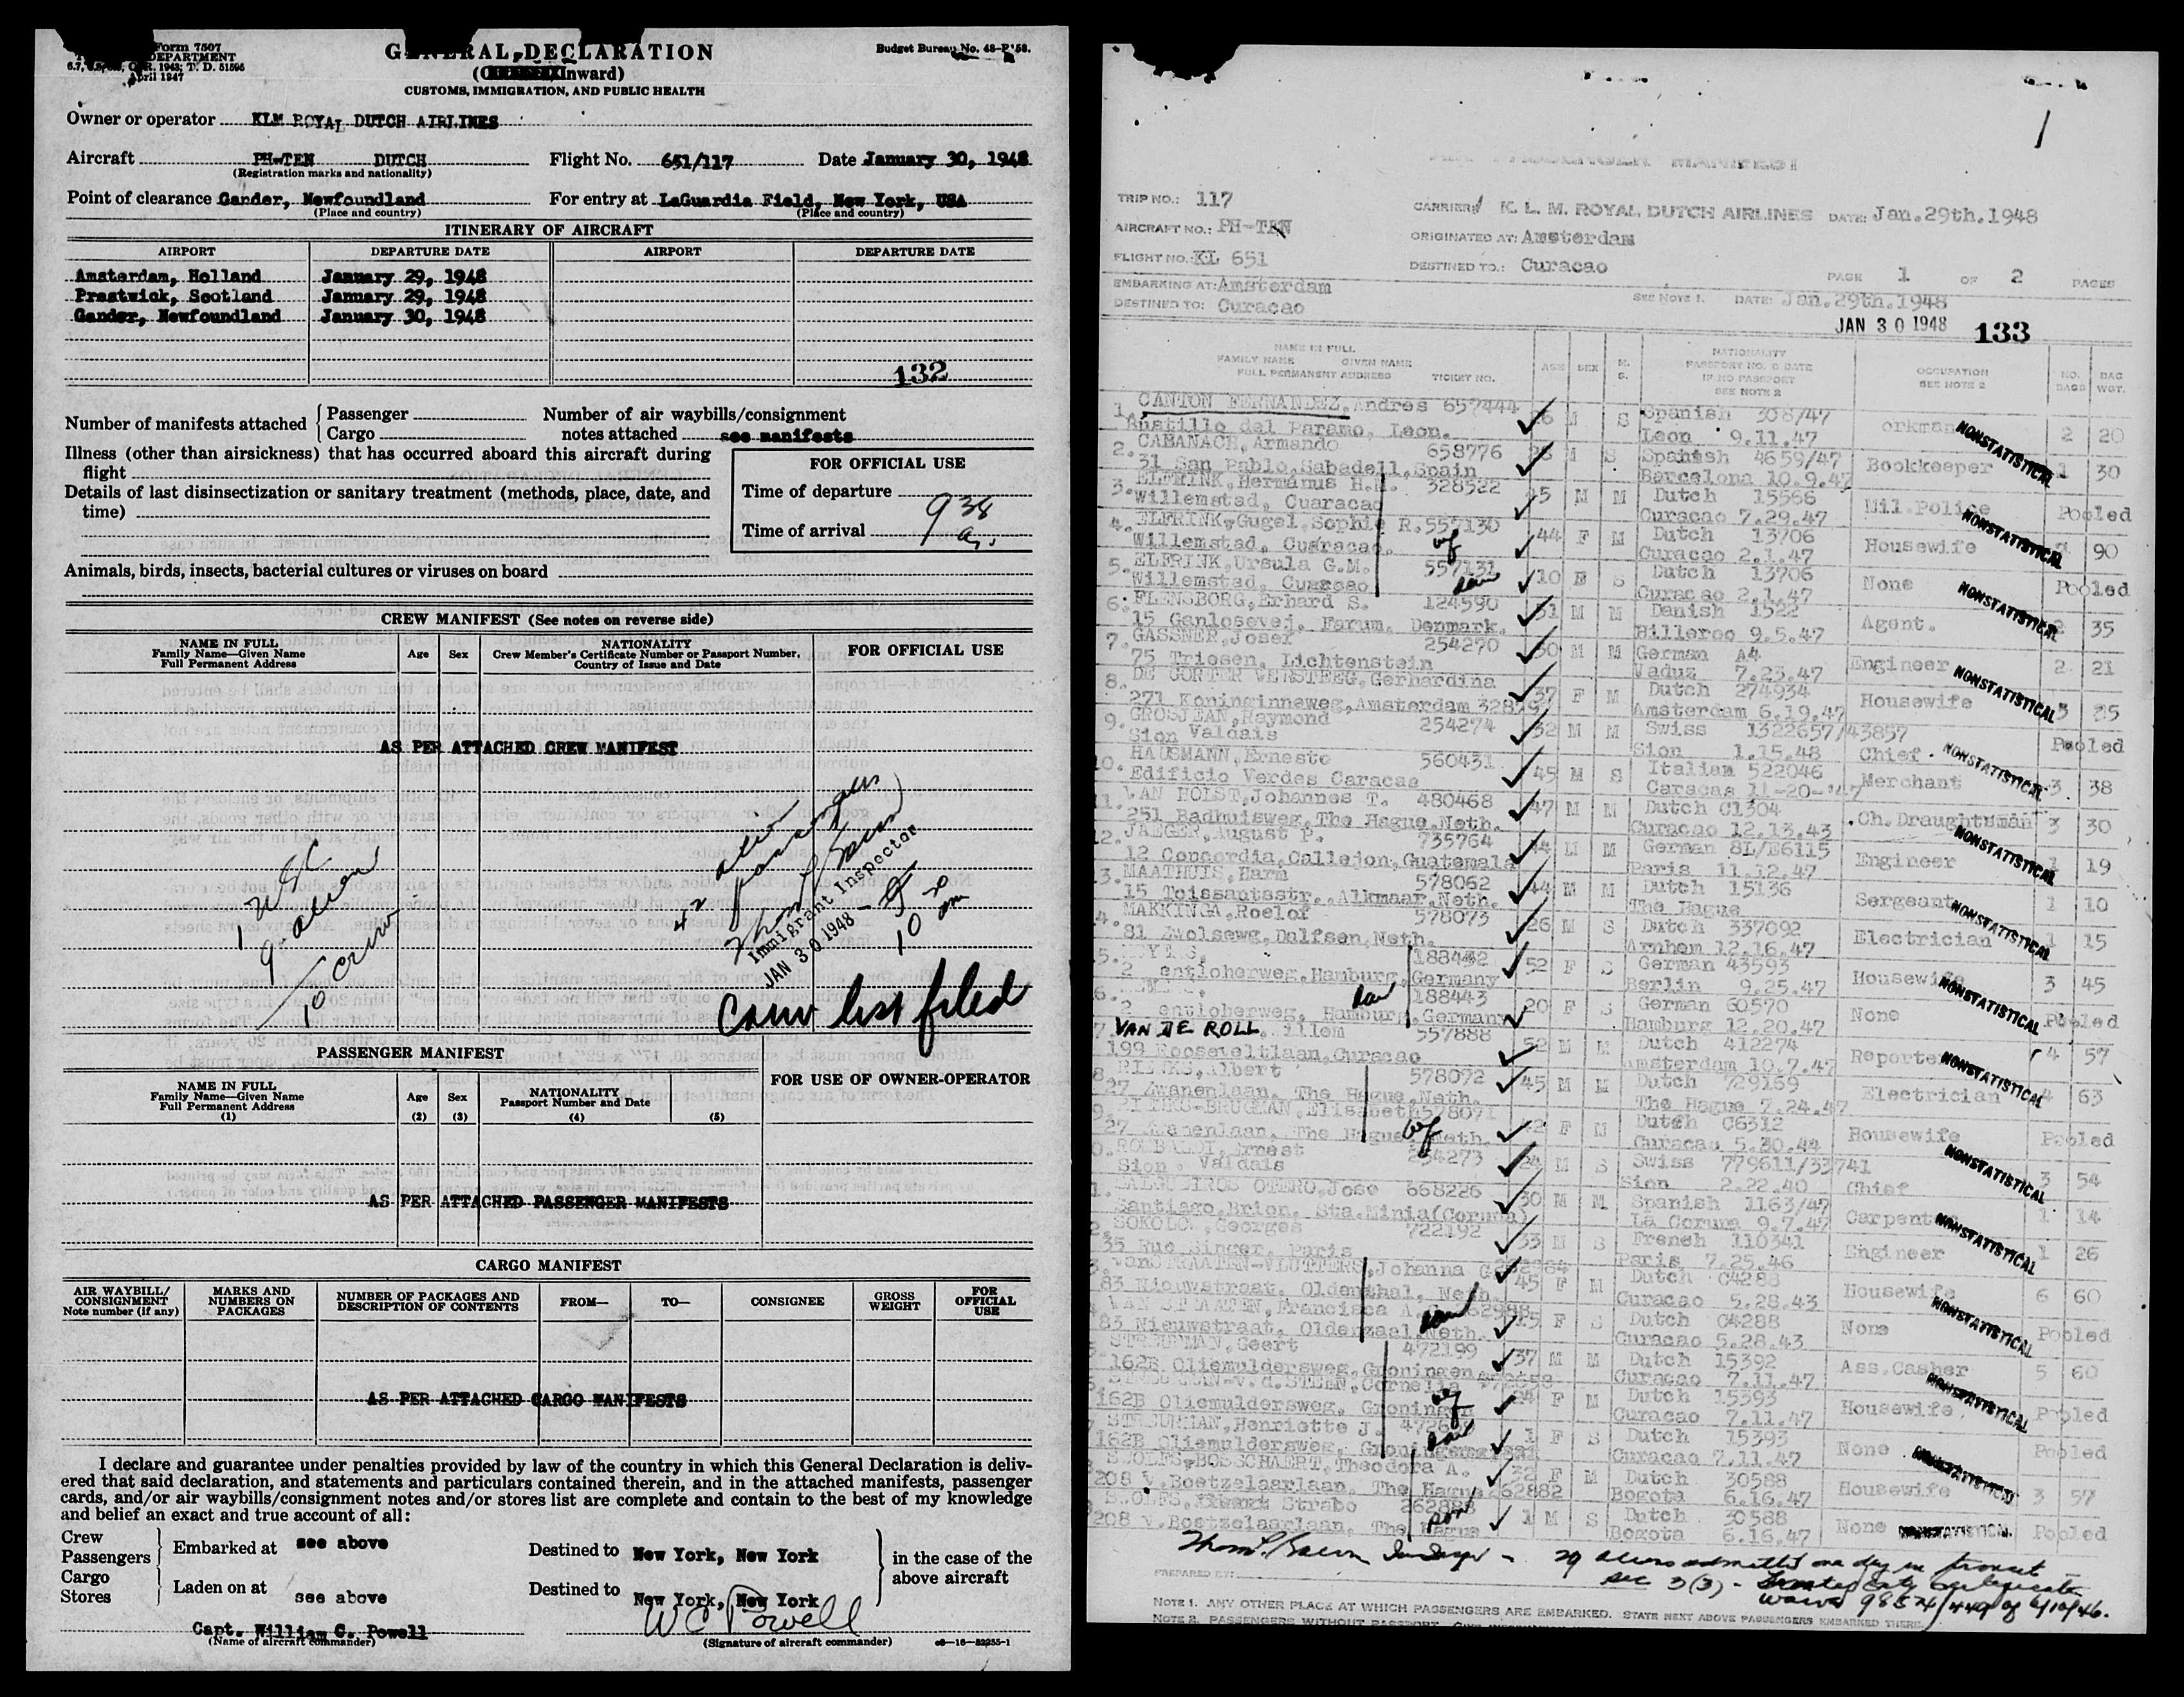 Form 7507
DEPARTMENT
1943; T. D. 51595
April 1947
GENERAL DECLARATION
Inward)
CUSTOMS, IMMIGRATION, AND PUBLIC HEALTH
Budget Bureau No.
Owner or operator KLM ROYAL DUTCH AIRLINES
Aircraft PH-TEN DUTCH Flight No. 651/117 Date January 30, 1948
(Registration marks and nationality)
Point of clearance Gander, Newfoundland For entry at LaGuardia Field, New York, USA
(Place and country) (Place and country)
ITINERARY OF AIRCRAFT
AIRPORT DEPARTURE DATE AIRPORT DEPARTURE DATE
Amsterdam, Holland January 29, 1948
Prestwick, Scotland January 29, 1948
Gander, Newfoundland January 30, 1948
132
Number of manifests attached { Passenger
Cargo
Number of air waybills/consignment
notes attached see manifests
Illness (other than airsickness) that has occurred aboard this aircraft during
flight
Details of last disinsectization or sanitary treatment (methods, place, date, and
time)
FOR OFFICIAL USE
Time of departure
Time of arrival 9 38 a.
Animals, birds, insects, bacterial cultures or viruses on board
CREW MANIFEST (See notes on reverse side)
NAME IN FULL
Family Name—Given Name
Full Permanent Address
Age Sex
NATIONALITY
Crew Member's Certificate Number or Passport Number,
Country of Issue and Date
FOR OFFICIAL USE
AS PER ATTACHED CREW MANIFEST
1 USC
9 alien
10 crew
42 alien passengers
Immigrant Inspector
JAN 30 1948
10 30 am
Crew list filed
PASSENGER MANIFEST
NAME IN FULL
Family Name—Given Name
Full Permanent Address
(1)
Age (2) Sex (3)
NATIONALITY
Passport Number and Date
(4) (5)
FOR USE OF OWNER-OPERATOR
AS PER ATTACHED PASSENGER MANIFESTS
CARGO MANIFEST
AIR WAYBILL/
CONSIGNMENT
Note number (if any)
MARKS AND
NUMBERS ON
PACKAGES
NUMBER OF PACKAGES AND
DESCRIPTION OF CONTENTS
FROM— TO— CONSIGNEE
GROSS
WEIGHT
FOR
OFFICIAL
USE
AS PER ATTACHED CARGO MANIFESTS
I declare and guarantee under penalties provided by law of the country in which this General Declaration is deliv-
ered that said declaration, and statements and particulars contained therein, and in the attached manifests, passenger
cards, and/or air waybills/consignment notes and/or stores list are complete and contain to the best of my knowledge
and belief an exact and true account of all:
Crew
Passengers } Embarked at see above Destined to New York, New York
Cargo
Stores } Laden on at see above Destined to New York, New York
in the case of the
above aircraft
Capt. William C. Powell
(Name of aircraft commander)
W C Powell
(Signature of aircraft commander)
16—52255-1
1
PASSENGER MANIFEST
TRIP NO.: 117 CARRIER: K. L. M. ROYAL DUTCH AIRLINES DATE: Jan.29th.1948
AIRCRAFT NO.: PH-TEN ORIGINATED AT: Amsterdam
FLIGHT NO. KL 651 DESTINED TO.: Curacao PAGE 1 OF 2 PAGES
EMBARKING AT: Amsterdam SEE NOTE 1. DATE: Jan.29th.1948
DESTINED TO: Curacao
JAN 30 1948 133
NAME IN FULL
FAMILY NAME GIVEN NAME
FULL PERMANENT ADDRESS TICKET NO.
AGE SEX M. S.
NATIONALITY
PASSPORT NO. & DATE
IF NO PASSPORT
SEE NOTE 2
OCCUPATION
SEE NOTE 2
NO. BAGS BAG WGT.
1. CANTON FERNANDEZ, Andres 657444 M S Spanish 308/47 orkman 2 20
Bustillo del Paramo, Leon. Leon 9.11.47 NONSTATISTICAL
2. CABANACH, Armando 658776 M S Spanish 4659/47 Bookkeeper 1 30
31 San Pablo, Sabadell, Spain Barcelona 10.9.47
3. ELFRINK, Hermanus H.H. 328522 45 M M Dutch 15566 Mil.Police Pooled
Willemstad, Cuaracao Curacao 7.29.47 NONSTATISTICAL
4. ELFRINK, Gugel, Sophie R. 557130 wf 44 F M Dutch 13706 Housewife 90
Willemstad, Cuaracao. Curacao 2.1.47
5. ELFRINK, Ursula G.M. 557131 dau 10 F S Dutch 13706 None Pooled
Willemstad, Curacao Curacao 2.1.47 NONSTATISTICAL
6. FLENSBORG, Erhard S. 124590 31 M M Danish 1522 Agent. 35
15 Ganlosevej, Farum, Denmark. Hilleroe 9.5.47
7. GASSNER, Josef 254270 30 M M German A4 Engineer 2 21
75 Triesen, Lichtenstein Vaduz 7.23.47 NONSTATISTICAL
8. DE GORTER VERSTEEG, Gerhardina 37 F M Dutch 274934 Housewife 3 25
271 Koninginneweg, Amsterdam Amsterdam 6.19.47
9. GROSJEAN, Raymond 254274 32 M M Swiss 1322657/43857 Chief Pooled
Sion Valdais Sion 1.15.48 NONSTATISTICAL
0. HAUSMANN, Ernesto 560431 45 M S Italian 522046 Merchant 3 38
Edificio Verdes Caracas Caracas 11-20-'47
1. VAN HOLST, Johannes T. 480468 47 M M Dutch C1304 Ch. Draughtsman 3 30
251 Badhuisweg, The Hague, Neth. Curacao 12.13.43 NONSTATISTICAL
2. JAEGER, August P. 735764 44 M German 8L/E6115 Engineer 1 19
12 Concordia, Callejon, Guatemala Paris 11.12.47
3. MAATHUIS, Harm 578062 44 M M Dutch 15136 Sergeant 1 10
15 Toissantsstr., Alkmaar, Neth. The Hague NONSTATISTICAL
4. MAKKINGA, Roelof 578073 26 M S Dutch 337092 Electrician 1 15
81 Zwolsewg, Dalfsen, Neth. Arnhem 12.16.47
5. 188442 52 F S German 43593 Housewife 3 45
2 entloherweg, Hamburg, Germany Berlin 9.25.47 NONSTATISTICAL
6. dau 188443 20 F S German 60570 None Pooled
2 entloherweg, Hamburg, Germany Hamburg 12.20.47
7 VAN DE ROLL, illem 557888 52 M M Dutch 412274 Reporter 4 57
199 Rooseveltlaan, Curacao Amsterdam 10.7.47 NONSTATISTICAL
8. RIENKS, Albert 578072 45 M M Dutch 729169 Electrician 4 63
27 Zwanenlaan, The Hague, Neth. The Hague 7.24.47
9. RIENKS-BRUGMAN, Elisabeth 578071 wf 42 F M Dutch C6312 Housewife Pooled
27 Zwanenlaan, The Hague, Neth. Curacao 5.30.44
0. ROUBALDI, Ernest 254273 24 M S Swiss 779611/33741 Chief 3 54
Sion, Valdais Sion 2.22.40 NONSTATISTICAL
1. SALGUEIROS OTERO, Jose 668226 30 M M Spanish 1163/47 Carpenter 1 14
Santiago, Brion, Sta.Minia(Coruna) La Coruna 9.7.47
2. SOKOLOW, Georges 722192 33 M S French 110341 Engineer 1 26
35 Rue Singer, Paris Paris 7.25.46 NONSTATISTICAL
3. VanSTRAATEN-VLUTTERS, Johanna G. 45 F M Dutch C4288 Housewife 6 60
83 Nieuwstraat, Oldenthal, Neth. Curacao 5.28.43
VAN STRAATEN, Francisca A. dau F S Dutch C4288 None Pooled
83 Nieuwstraat, Oldenzaal, Neth. Curacao 5.28.43 NONSTATISTICAL
STREURMAN, Geert 472199 37 M M Dutch 15392 Ass.Casher 5 60
162B Oliemuldersweg, Groningen Curacao 7.11.47
v.d.STEEN, Cornelia wf F M Dutch 15393 Housewife Pooled
162B Oliemuldersweg, Groningen Curacao 7.11.47 NONSTATISTICAL
STREURMAN, Henriette J. dau 1 F S Dutch 15393 None Pooled
162B Oliemuldersweg, Groningen Curacao 7.11.47
SWOLFS, BOSSCHAERT, Theodora A. 32 F M Dutch 30588 Housewife 3 57
208 V. Boetzelaarlaan, The Hague 262882 Bogota 6.16.47 NONSTATISTICAL
SWOLFS, Strabo son 1 M S Dutch 30588 None Pooled
208 V.Boetzelaarlaan, The Hague Bogota 6.16.47 NONSTATISTICAL
29 aliens admitted one day in transit
sec 3(3)
PREPARED BY:
NOTE 1. ANY OTHER PLACE AT WHICH PASSENGERS ARE EMBARKED. STATE NEXT ABOVE PASSENGERS EMBARKED THERE.
NOTE 2. PASSENGERS WITHOUT PASSPORT